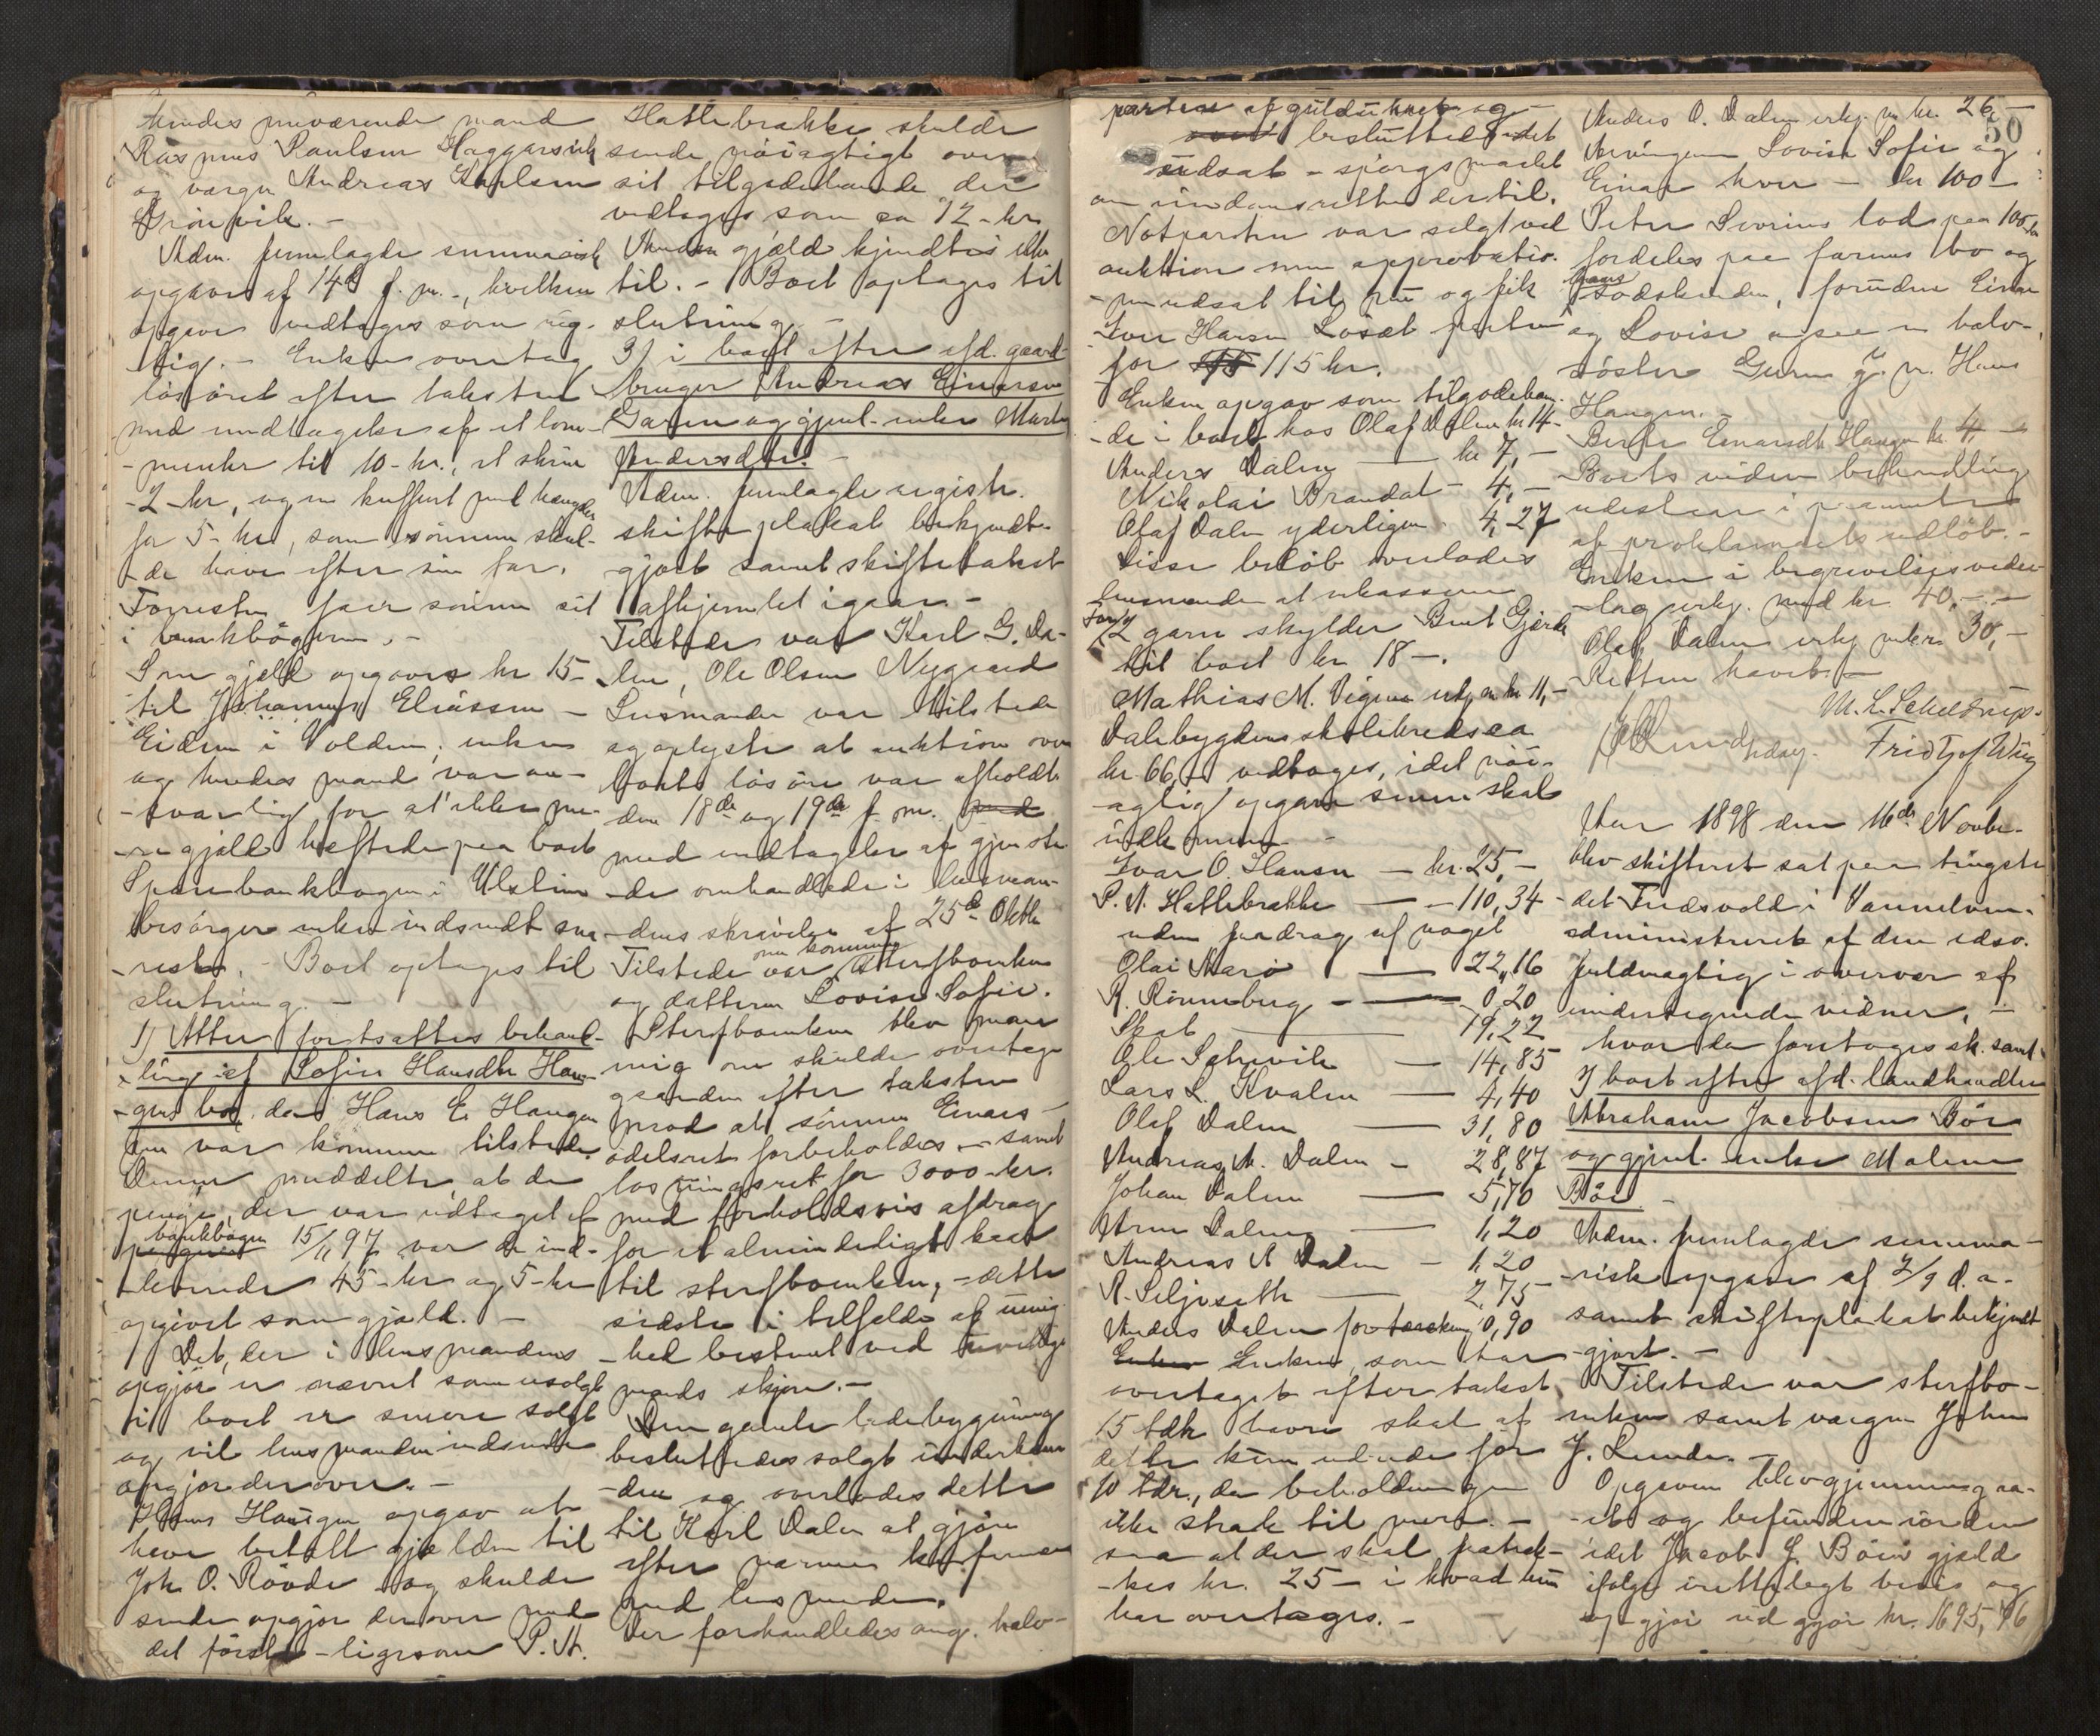 hendes nuværende mand
Rasmus Paulsen Haggarsvik
og værgen Andreas Karlsen
Grönvik. -
Adm. fremlagde summarisk
opgave af 14de f. m., hvilken
opgave vedtages som rig-
tig. - Enken overtog
lösöret efter taksten
med undtagelse af et lom-
meuhr til 10 - kr., et skrin
- 2 - kr, og en kuffert med
for 5 - kr, som sönnen skul-
de have efter sin far.
Forresten faar sönnen sit
i bankbögerne. -
Som gjæld opgaves kr 15 -
til Johannes Eliassen -
Eidem i Volden; enken
og hendes mand var an-
svarlig for at ikke me-
re gjæld heftede paa boet
Sparebankbogen i Ulstein
besörger enken indsendt sna-
rest. - Boet optages til
slutning. -
1) Atter fortsattes behand-
ling af Sofie Hansdtr Hau-
gens bo, da Hans E. Haugen
nu var kommen tilstede.
Denne meddelte, at de
penge, der var udtaget af
bankbogen 15/11 97 var de ind-
leverede 45 - kr og 5 - kr
opgivet som gjæld. -
Det, der i lensmandens
opgjör er nævnt som usolgt
i boet er senere solgt
og vil lensmanden indsende
opgjör derover. -
Hans Haugen opgav at
have betalt gjælden til
Joh. O. Rövde og skulde
sende opgjör derover med
det förste - ligesom P. A.
Hattebrække skulde
sende nöiagtigt over
sit tilgodehavende der
vedtages som ca 12 - kr.
Anden gjæld kjendtes ikke
til. - Boet optages til
slutning. -
3) i boet efter afd. gaard-
bruger Andreas Einarsen
Dalen og gjenl. enke Marte
Andersdtr. -
Adm. fremlagde registr.
skifteplakat bekjendt-
gjort samt skiftetakst
afhjemlet igaar. -
Tilstede var Karl G. Da-
len, Ole Olsen Nygaard
Lensmanden var tilstede
og oplyste at auktion over
boets lösöre var afholdt
den 18de og 19de f. m. med
med undtagelse af gjensta-
de omhandlede i lensman-
dens skrivelse af 25de Oktbr
Tilstede var nu kommen sterfboenken
og datteren Lovise Sofie.
Sterfboenken blev man
enig om skulde overtage
gaarden efter taksten
mod at sönnen Einars
odelsret forbeholdes - samt
lösningsret for 3000 - kr.
med forholdsvis afdrag
for et almindeligt kaar
til sterfboenken, - dette
sidste i tilfælde af uenig-
hed bestemt ved uvillige
mænds skjön. -
Den gamle ladebygning
besluttedes solgt underhaan-
den og overlodes dette
til Karl Dalen at gjöre
efter nærmere konferance
med lensmanden.
Der forhandledes ang. halv-
parten af gulduhret og
besluttedes det
udsat - spörgsmaalet
om eiendomsretten dertil.
Notparten var solgt ved
auktion men approbatio-
nen udsat til nu og fik
Iver Hansen Losæt parten
for 115 kr.
Enken opgav som tilgodehaven-
de i boet hos Olaf Dalen kr 14 -
Anders Dalen — kr 7, -
Nikolai Brandal - 4, -
Olaf Dalen yderligere 4,27
Disse belöb overlodes
lensmanden at inkassere
For 2 garn skylder Bent Gjerde
til boet kr 18 -.
Mathias M. Vigen erkj. en kr 11, -
Dalebygdens skolekreds ca
kr. 66, - vedtoges, idet nöi-
agtig opgave senere skal
indkomme -
Ivar O. Hansen — kr. 25, -
P. A. Hattebrække — 110,34
uden fradrag af vaget
Olai Aarö — 22,16
R. Rönneberg — 0,20
Skat — 19,22
Ole Sætrevik — 14,85
Lars L. Kvalen — 4,40
Olaf Dalen — 31,80
Andreas A. Dalen - 28,87
Johan Dalen — 5,70
Arne Dalen — 1,20
Andreas A Dalen - 1,20
R. Seljeseth — 2,75
Anders Dalen for tærskning 0,90
Enken Enken, som har
overtaget efter takst
15 tdr havre skal af
dette kun udrede for
10 tdr., da beholdningen
ikke strak til mere. -
saa at der skal fratræk-
kes kr. 25 - i hvad hun
har overtages. -
50
Anders O. Dalen erkj. en kr. 26, -
Arvingerne Lovise Sofie og
Einar hver - kr 100 -
Peter Severins lod paa 105 kr
fordeles paa farens bo og
hans södskende, foruden Einar
og Lovise ogsaa en halv-
söster Guren g. m. Hans
Haugen. -
Berte Einarsdtr Haugen kr. 4, -
Boets videre behandling
udestaar i paavente
af proklamaets udlöb. -
Enken i begravelsesveder-
lag erkj. med kr. 40, -
Olaf Dalen erkj en kr. 30, -
Retten hævet. -
M. L. Scheldrup.
Fridtjof Wiig
Aar 1898 den 16de Novbr.
blev skifteret sat paa tingste-
det Fredsvold i Vannelven
administreret af den edsv.
fuldmægtig i overvær af
undertegnede vidner, -
hvor da foretoges sk. saml.
1) boet efter afd. landhandler
Abraham Jacobsen Böe
og gjenl. enke Malene
Böe. -
Adm. fremlagde summa-
risk opgave af 7/9 d. a. -
samt skifteplakat bekjendt-
gjort. -
Tilstede var sterfbo-
enken samt værgen Johan
J. Lunde. -
Opgaven blev gjennemgaa-
et og befunden iorden
idet Jacob J. Böes gjæld
ifölge irettelagt bevis og
opgjör udgjör kr. 1695,76